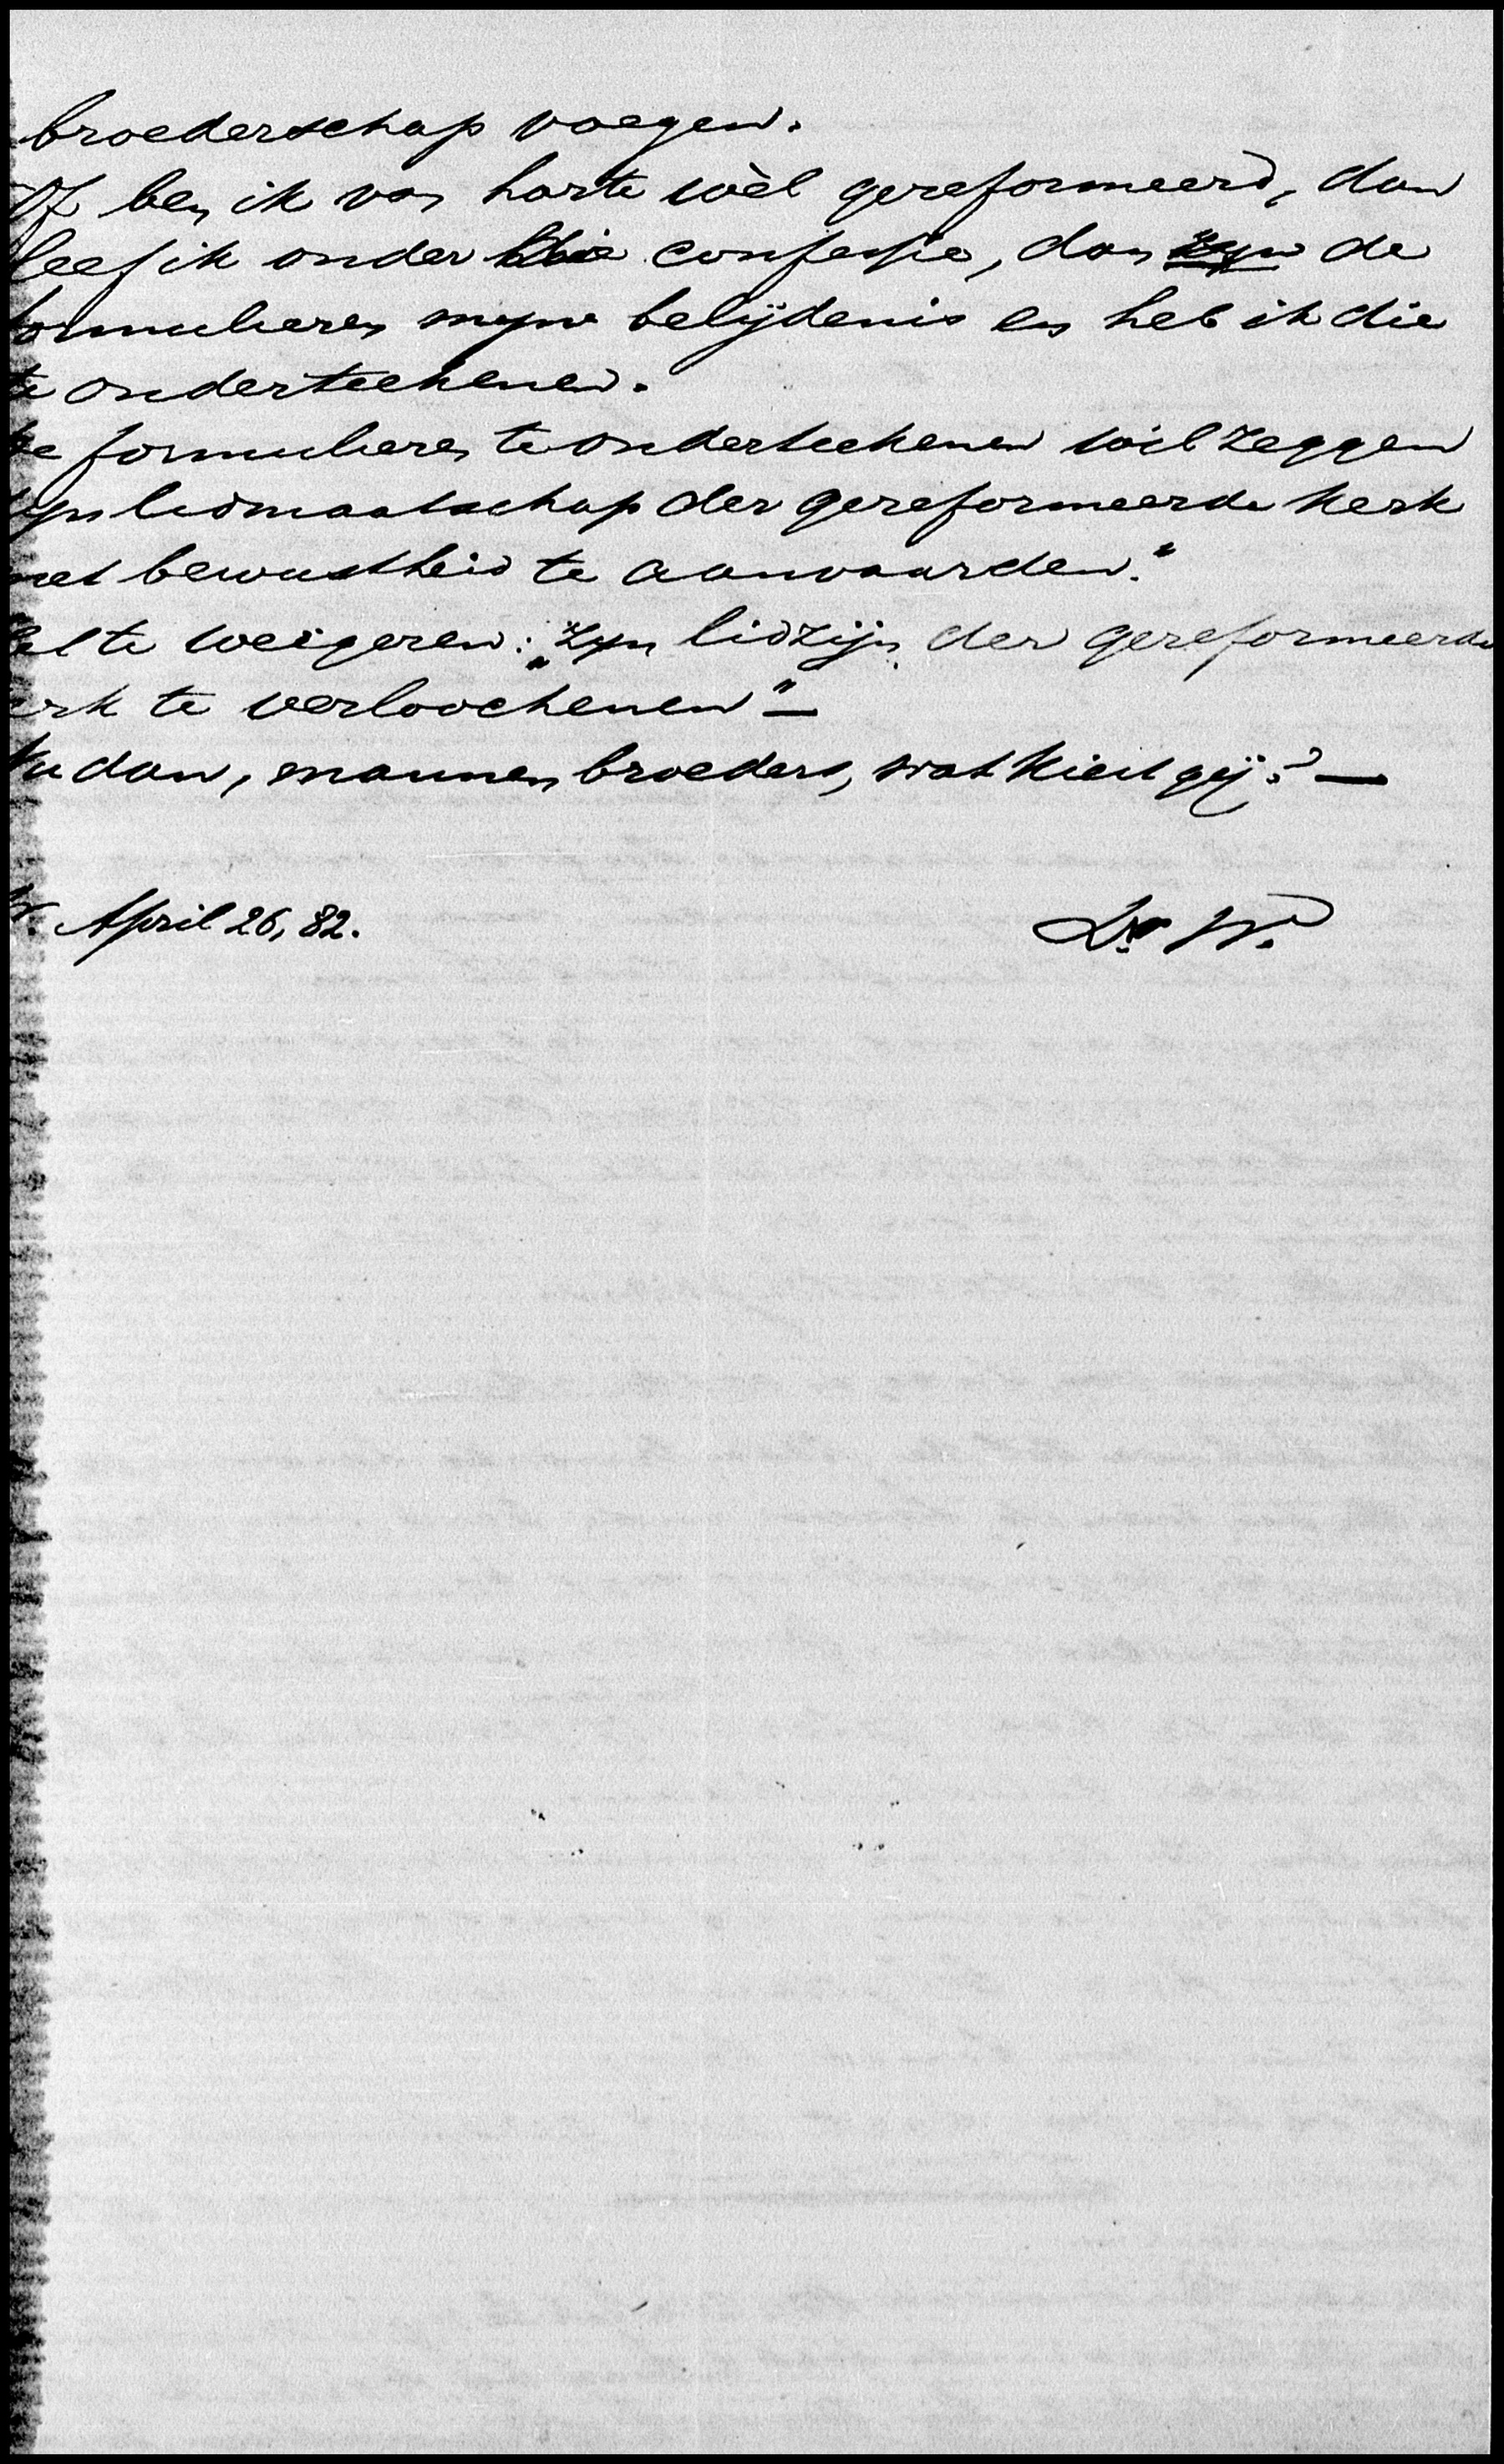 broederschap voegen.
Of ben ik van harte wèl gereformeerd, dan
leef ik onder die confessie, dan zyn de
formulieren myne belijdenis en heb ik die
te onderteekenen.
De formulieren te onderteekenen wil zeggen
zyn lidmaatschap der gereformeerde kerk
met bewustheid te aanvaarden."
Het te weigeren: "zyn lidzijn der gereformeerde
kerk te verloochenen" —
Nu dan, mannen broeders, wat kiest gij? —
W. April 26, 82.
Ds W.